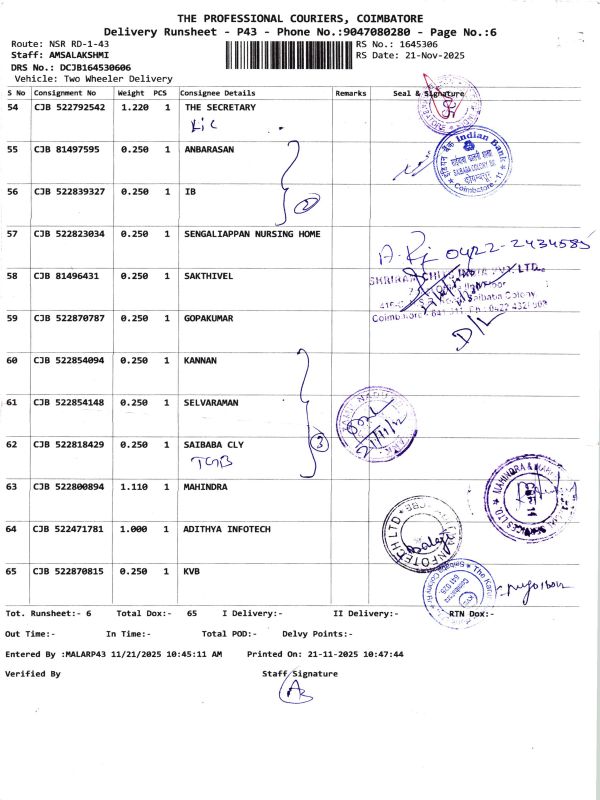 THE PROFESSIONAL COURIERS, COIMBATORE
Delivery Runsheet - P43 - Phone No.:9047080280 - Page No.:6
Route: NSR RD-1-43 RS No.: 1645306
Staff: AMSALAKSHMI RS Date: 21-Nov-2025
DRS No.: DCJB164530606
Vehicle: Two Wheeler Delivery
S No Consignment No Weight PCS Consignee Details Remarks Seal & Signature
54 CJB 522792542 1.220 1 THE SECRETARY
LIC
55 CJB 81497595 0.250 1 ANBARASAN
Indian Bank
Coimbatore - 11
56 CJB 522839327 0.250 1 IB
2
57 CJB 522823034 0.250 1 SENGALIAPPAN NURSING HOME
0422-2434585
58 CJB 81496431 0.250 1 SAKTHIVEL
SHRIRAM CHITS INDIA PVT. LTD.
Saibaba Colony
59 CJB 522870787 0.250 1 GOPAKUMAR
Coimbatore - 641 011.
D/L
60 CJB 522854094 0.250 1 KANNAN
61 CJB 522854148 0.250 1 SELVARAMAN
TAMIL NADU
21/11/12
3
62 CJB 522818429 0.250 1 SAIBABA CLY
TGB
63 CJB 522800894 1.110 1 MAHINDRA
64 CJB 522471781 1.000 1 ADITHYA INFOTECH
INFOTECH LTD
65 CJB 522870815 0.250 1 KVB
Tot. Runsheet:- 6 Total Dox:- 65 I Delivery:- II Delivery:- RTN Dox:-
Out Time:- In Time:- Total POD:- Delvy Points:-
Entered By :MALARP43 11/21/2025 10:45:11 AM Printed On: 21-11-2025 10:47:44
Verified By Staff Signature